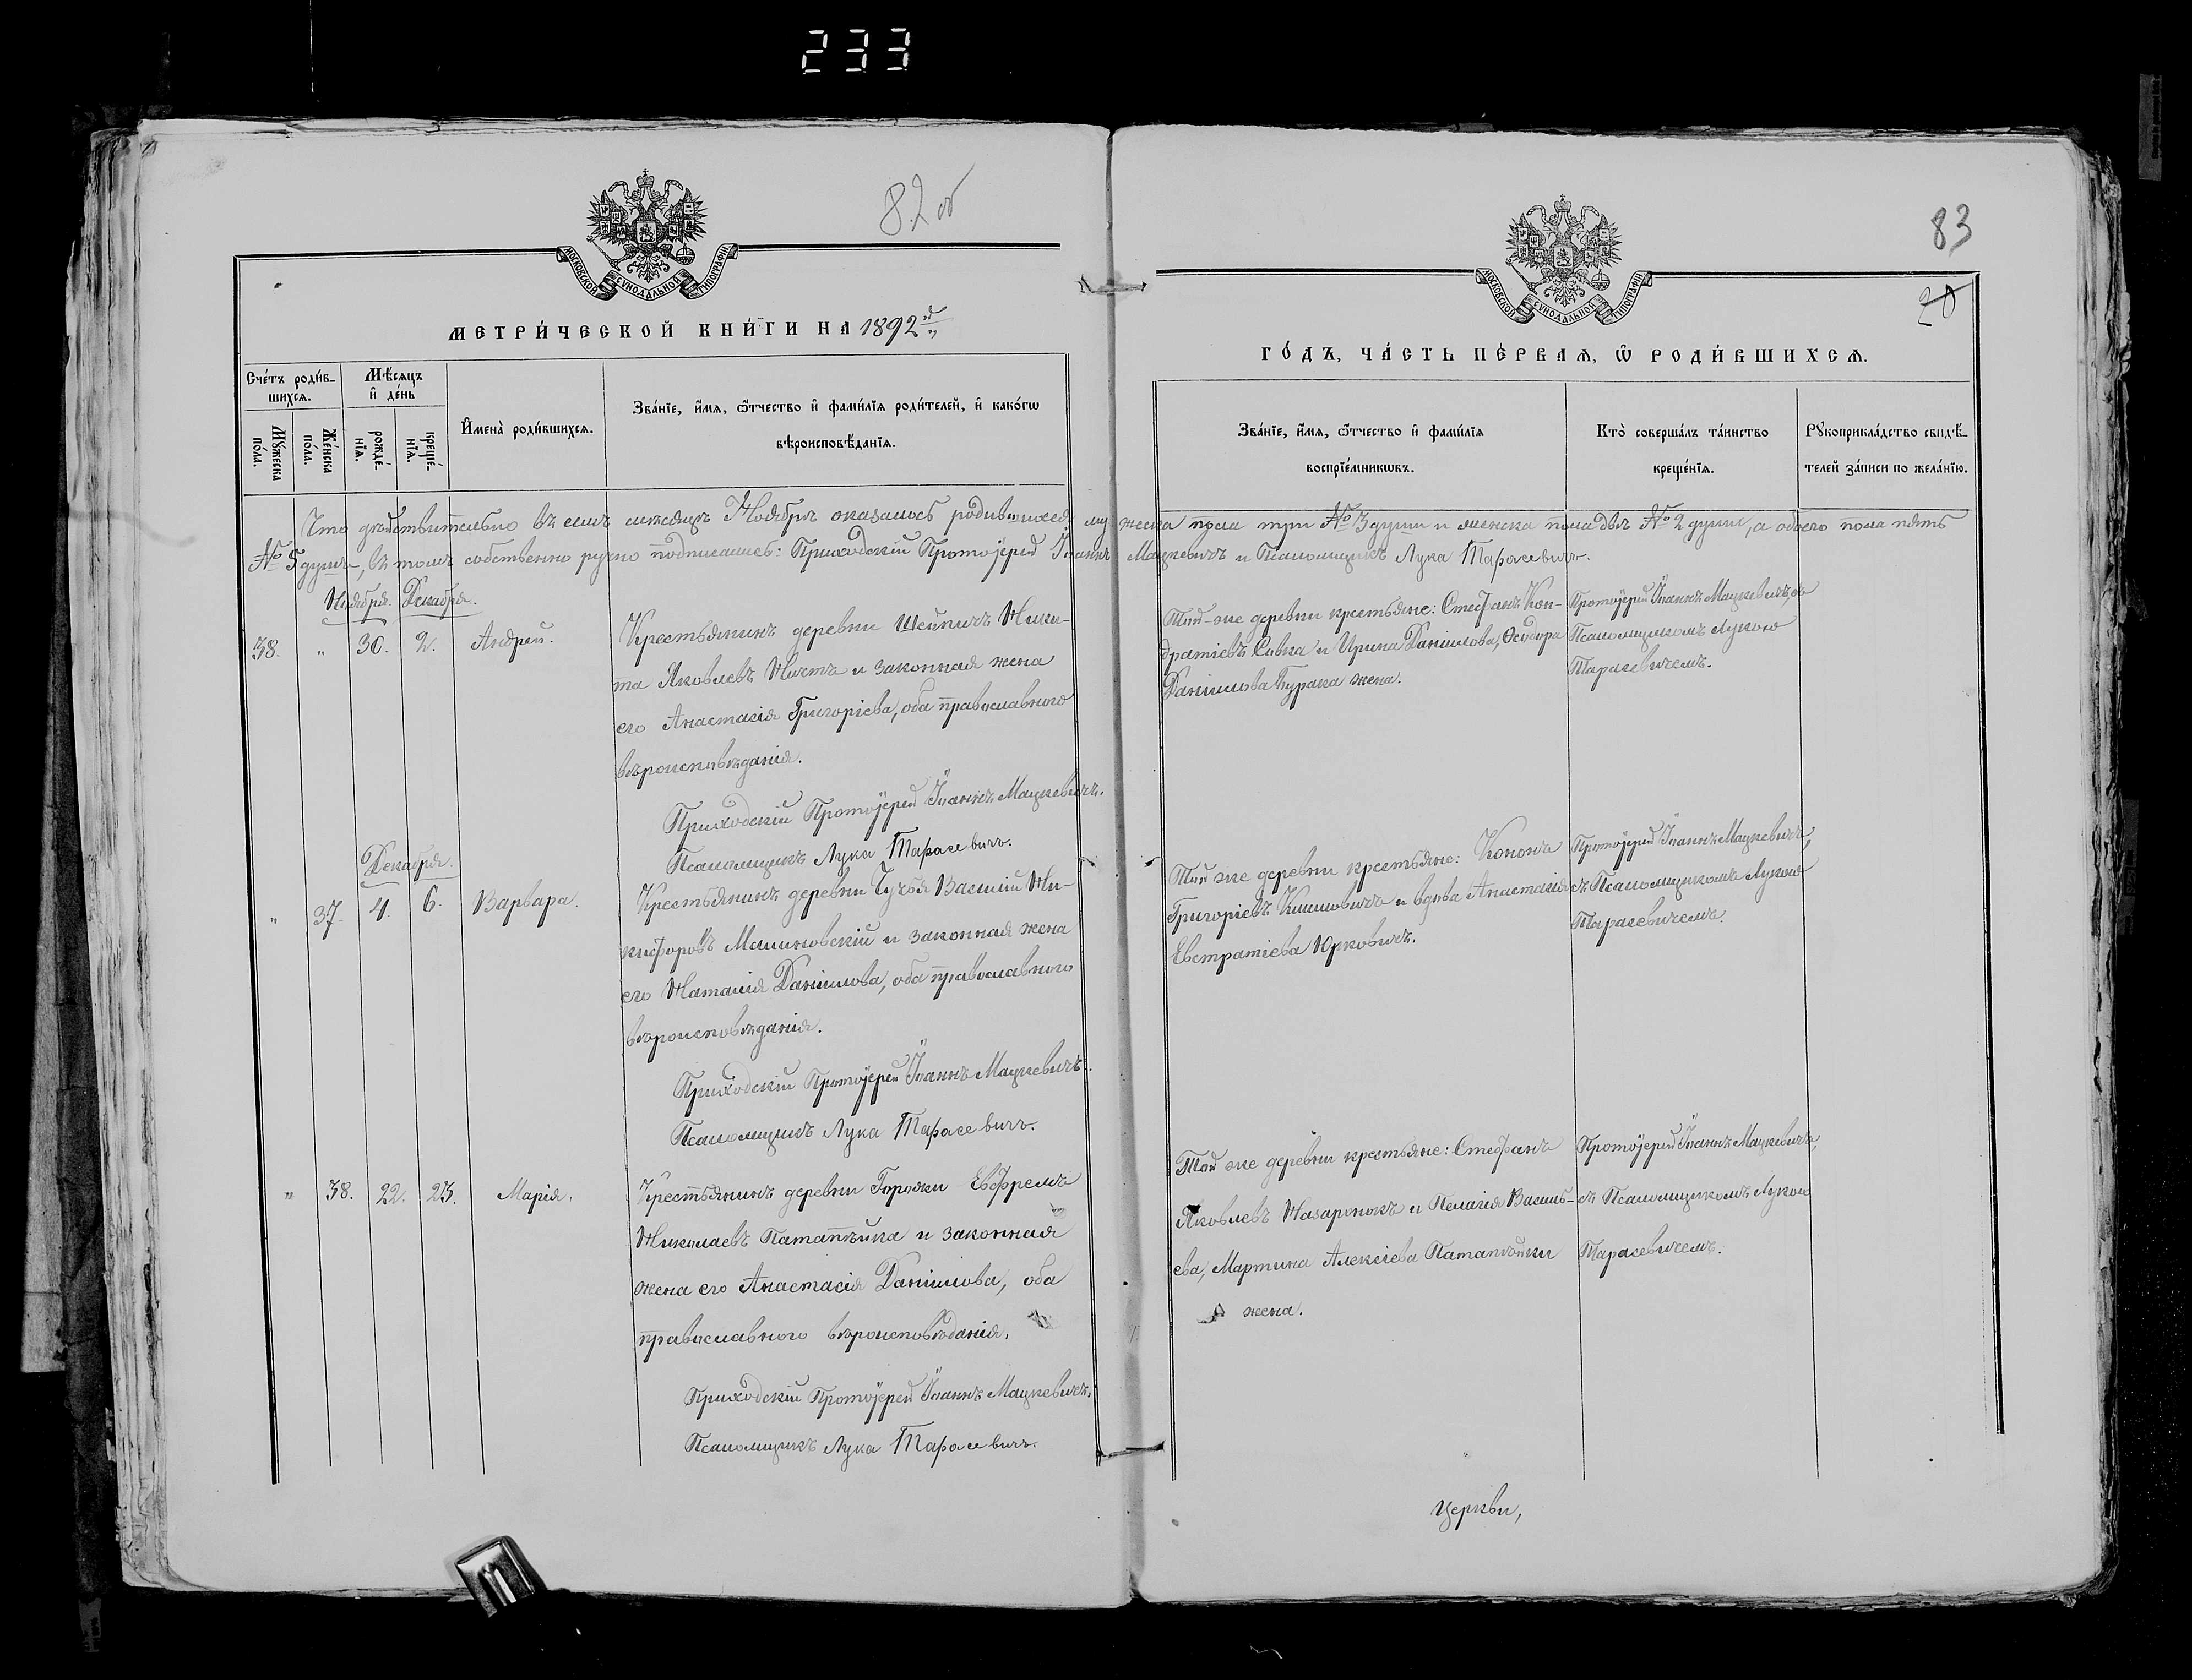 233
82 об
83
20
МОСКОВСКОЙ СѴНОДАЛЬНОЙ ТИПОГРАФІИ
МОСКОВСКОЙ СѴНОДАЛЬНОЙ ТИПОГРАФІИ
МЕТРИ́ЧЕСКОЙ КНИ́ГИ НА 1892й
ГО́ДЪ, ЧА́СТЬ ПЕ́РВАѦ, Ѡ҆ РОДИ́ВШИХСѦ.
Сче́тъ роди́в-
шихсѧ.
Мѣ́сѧцъ
и҆ де́нь
Мꙋ́жеска
по́ла.
Же́нска
по́ла.
рожде́-
нїѧ.
креще́-
нїѧ.
И҆мена̀ роди́вшихсѧ.
Зва́нїе, и҆́мѧ, ѻ҆́тчество и҆ фами́лїѧ роди́телей, и҆ како́гѡ
вѣроисповѣ́данїѧ.
Зва́нїе, и҆́мѧ, ѻ҆́тчество и҆ фами́лїѧ
воспрїе́мникѡвъ.
Кто̀ соверша́лъ та́инство
креще́нїѧ.
Рꙋкоприкла́дство свидѣ́-
телей за́писи по жела́нїю.
Что действительно въ семъ мѣсяцѣ Ноябрѣ оказалось родившихся мужеска пола три № 3 души и женска пола двѣ № 2 души, а обоего пола пять
№ 5 душъ, въ томъ собственно ручно подписались: Приходскій Протоіерей Іоаннъ Мацкевичъ и Псаломщикъ Лука Тарасевичъ.
Ноября. Декабря.
38. " 30. 2. Андрей.
Крестьянинъ деревни Шейпичъ Ники-
та Яковлевъ Нистъ и законная жена
его Анастасія Григоріева, оба православного
вѣроисповѣданія.
Приходскій Протоіерей Іоаннъ Мацкевичъ.
Псаломщикъ Лука Тарасевичъ.
Той-же деревни крестьяне: Стефанъ Кон-
дратіевъ Савка и Ирина Даніилова, Ѳеодора
Даніилова Бурака жена.
Протоіерей Іоаннъ Мацкевичъ, съ
Псаломщикомъ Лукою
Тарасевичемъ.
Декабря.
" 37. 4. 6. Варвара.
Крестьянинъ деревни Чучья Василій Ни-
кифоровъ Малиновскій и законная жена
его Наталія Даніилова, оба православного
вѣроисповѣданія.
Приходскій Протоіерей Іоаннъ Мацкевичъ.
Псаломщикъ Лука Тарасевичъ.
Той же деревни крестьяне: Кононъ
Григоріевъ Климовичъ и вдова Анастасія
Евстратіева Юрковичъ.
Протоіерей Іоаннъ Мацкевичъ,
съ Псаломщикомъ Лукою
Тарасевичемъ.
" 38. 22. 23. Марія.
Крестьянинъ деревни Горочки Евфремъ
Николаевъ Патапейка и законная
жена его Анастасія Даніилова, оба
православного вѣроисповѣданія.
Приходскій Протоіерей Іоаннъ Мацкевичъ.
Псаломщикъ Лука Тарасевичъ.
Той же деревни крестьяне: Стефанъ
Яковлевъ Назаронокъ и Пелагія Василь-
ева, Мартина Алексіева Патапейки
жена.
Протоіерей Іоаннъ Мацкевичъ,
съ Псаломщикомъ Лукою
Тарасевичемъ.
Церкви,